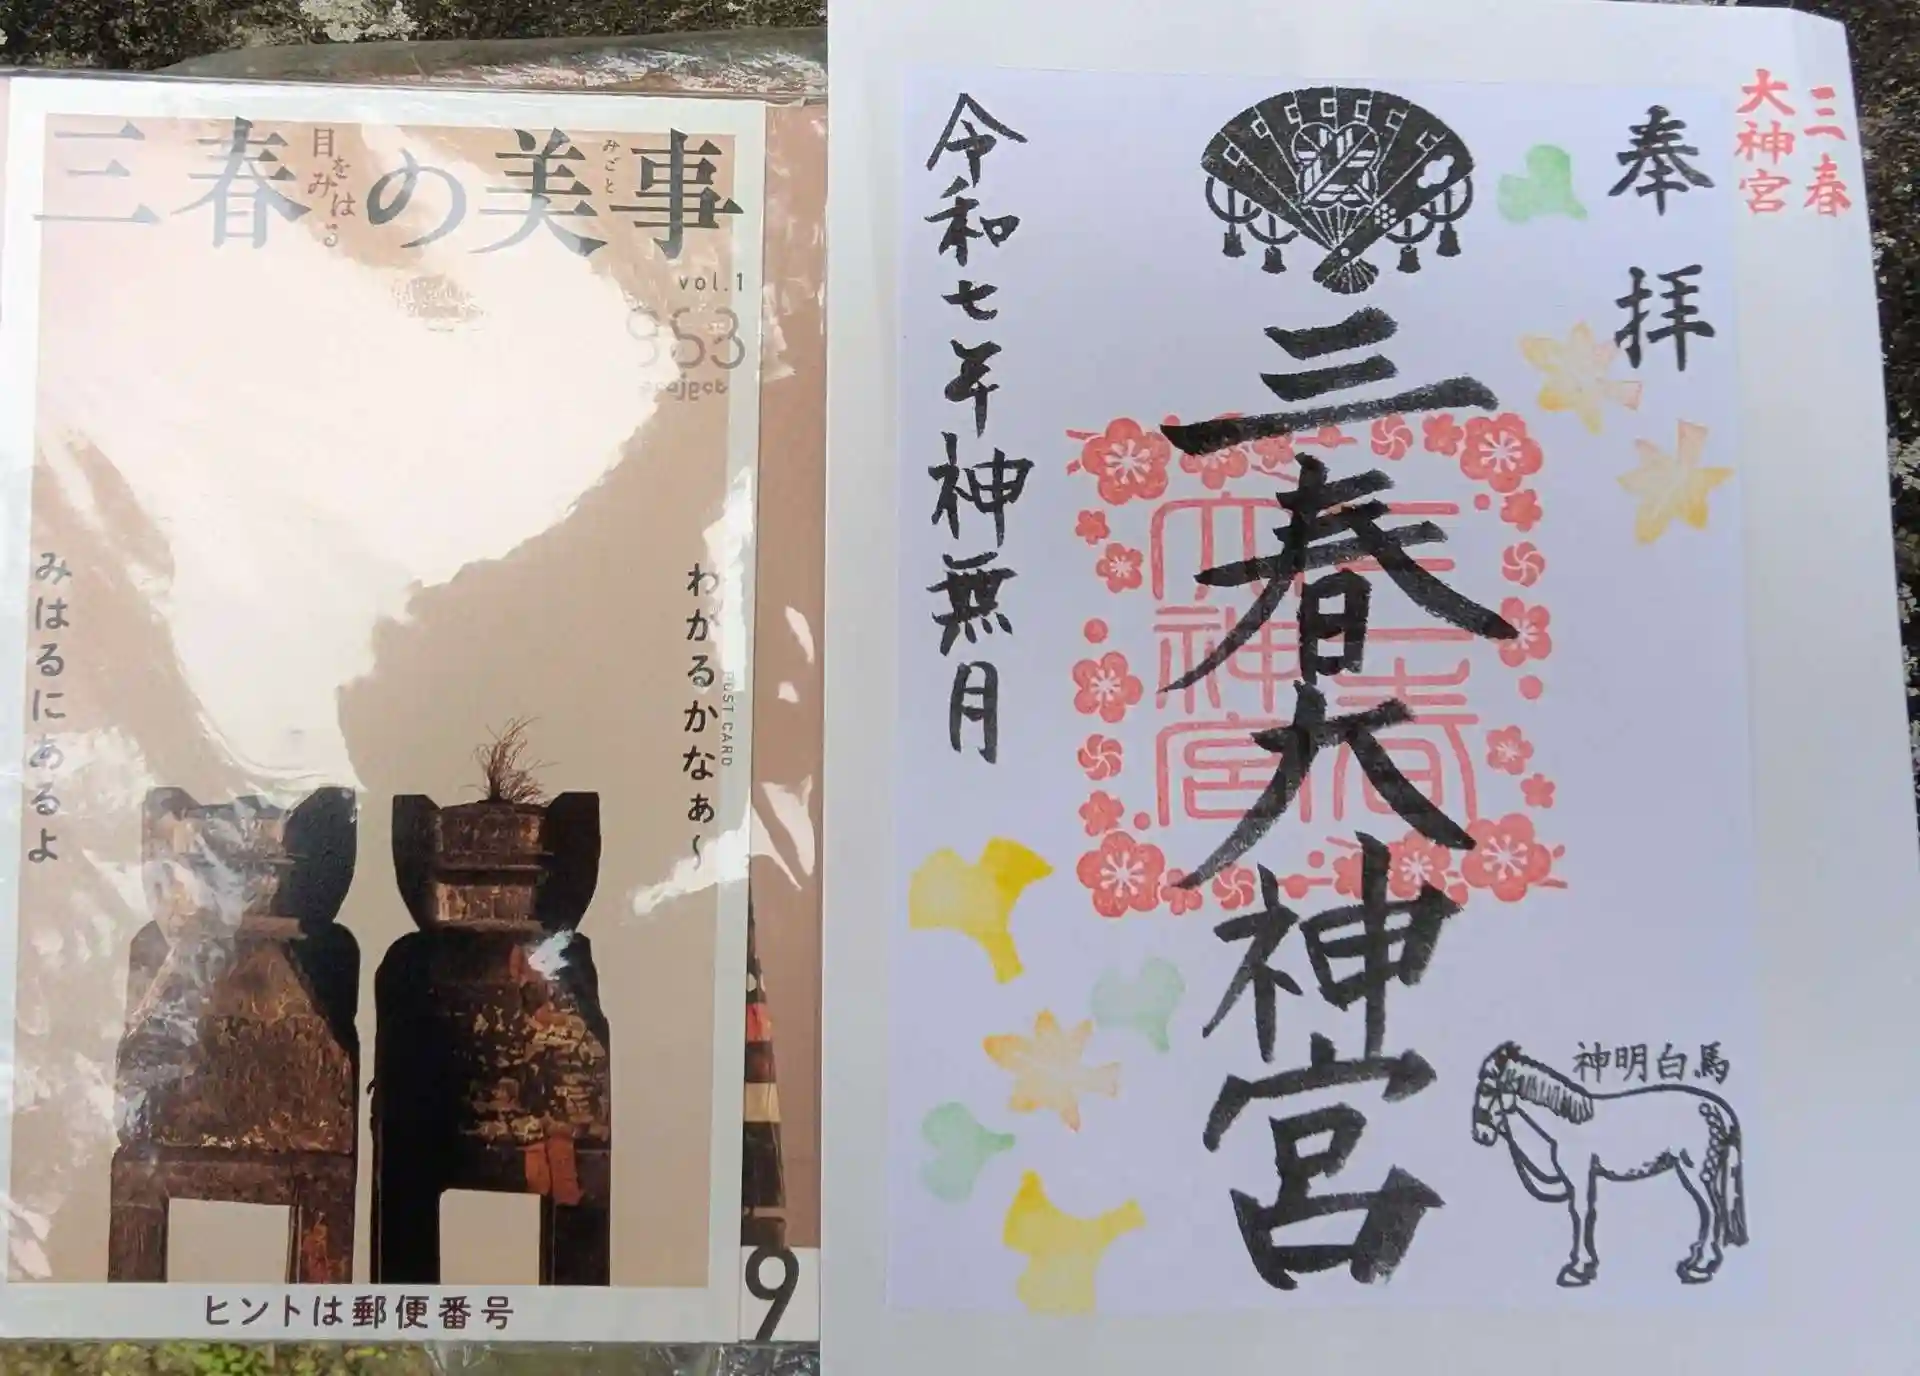 三春の美事
目をみはる
みごと
vol.1
963
project
わかるかなぁ〜
みはるにあるよ
POST CARD
ヒントは郵便番号
9
三春
大神宮
奉拝
三春大神宮
三春
大神宮
令和七年神無月
神明白馬